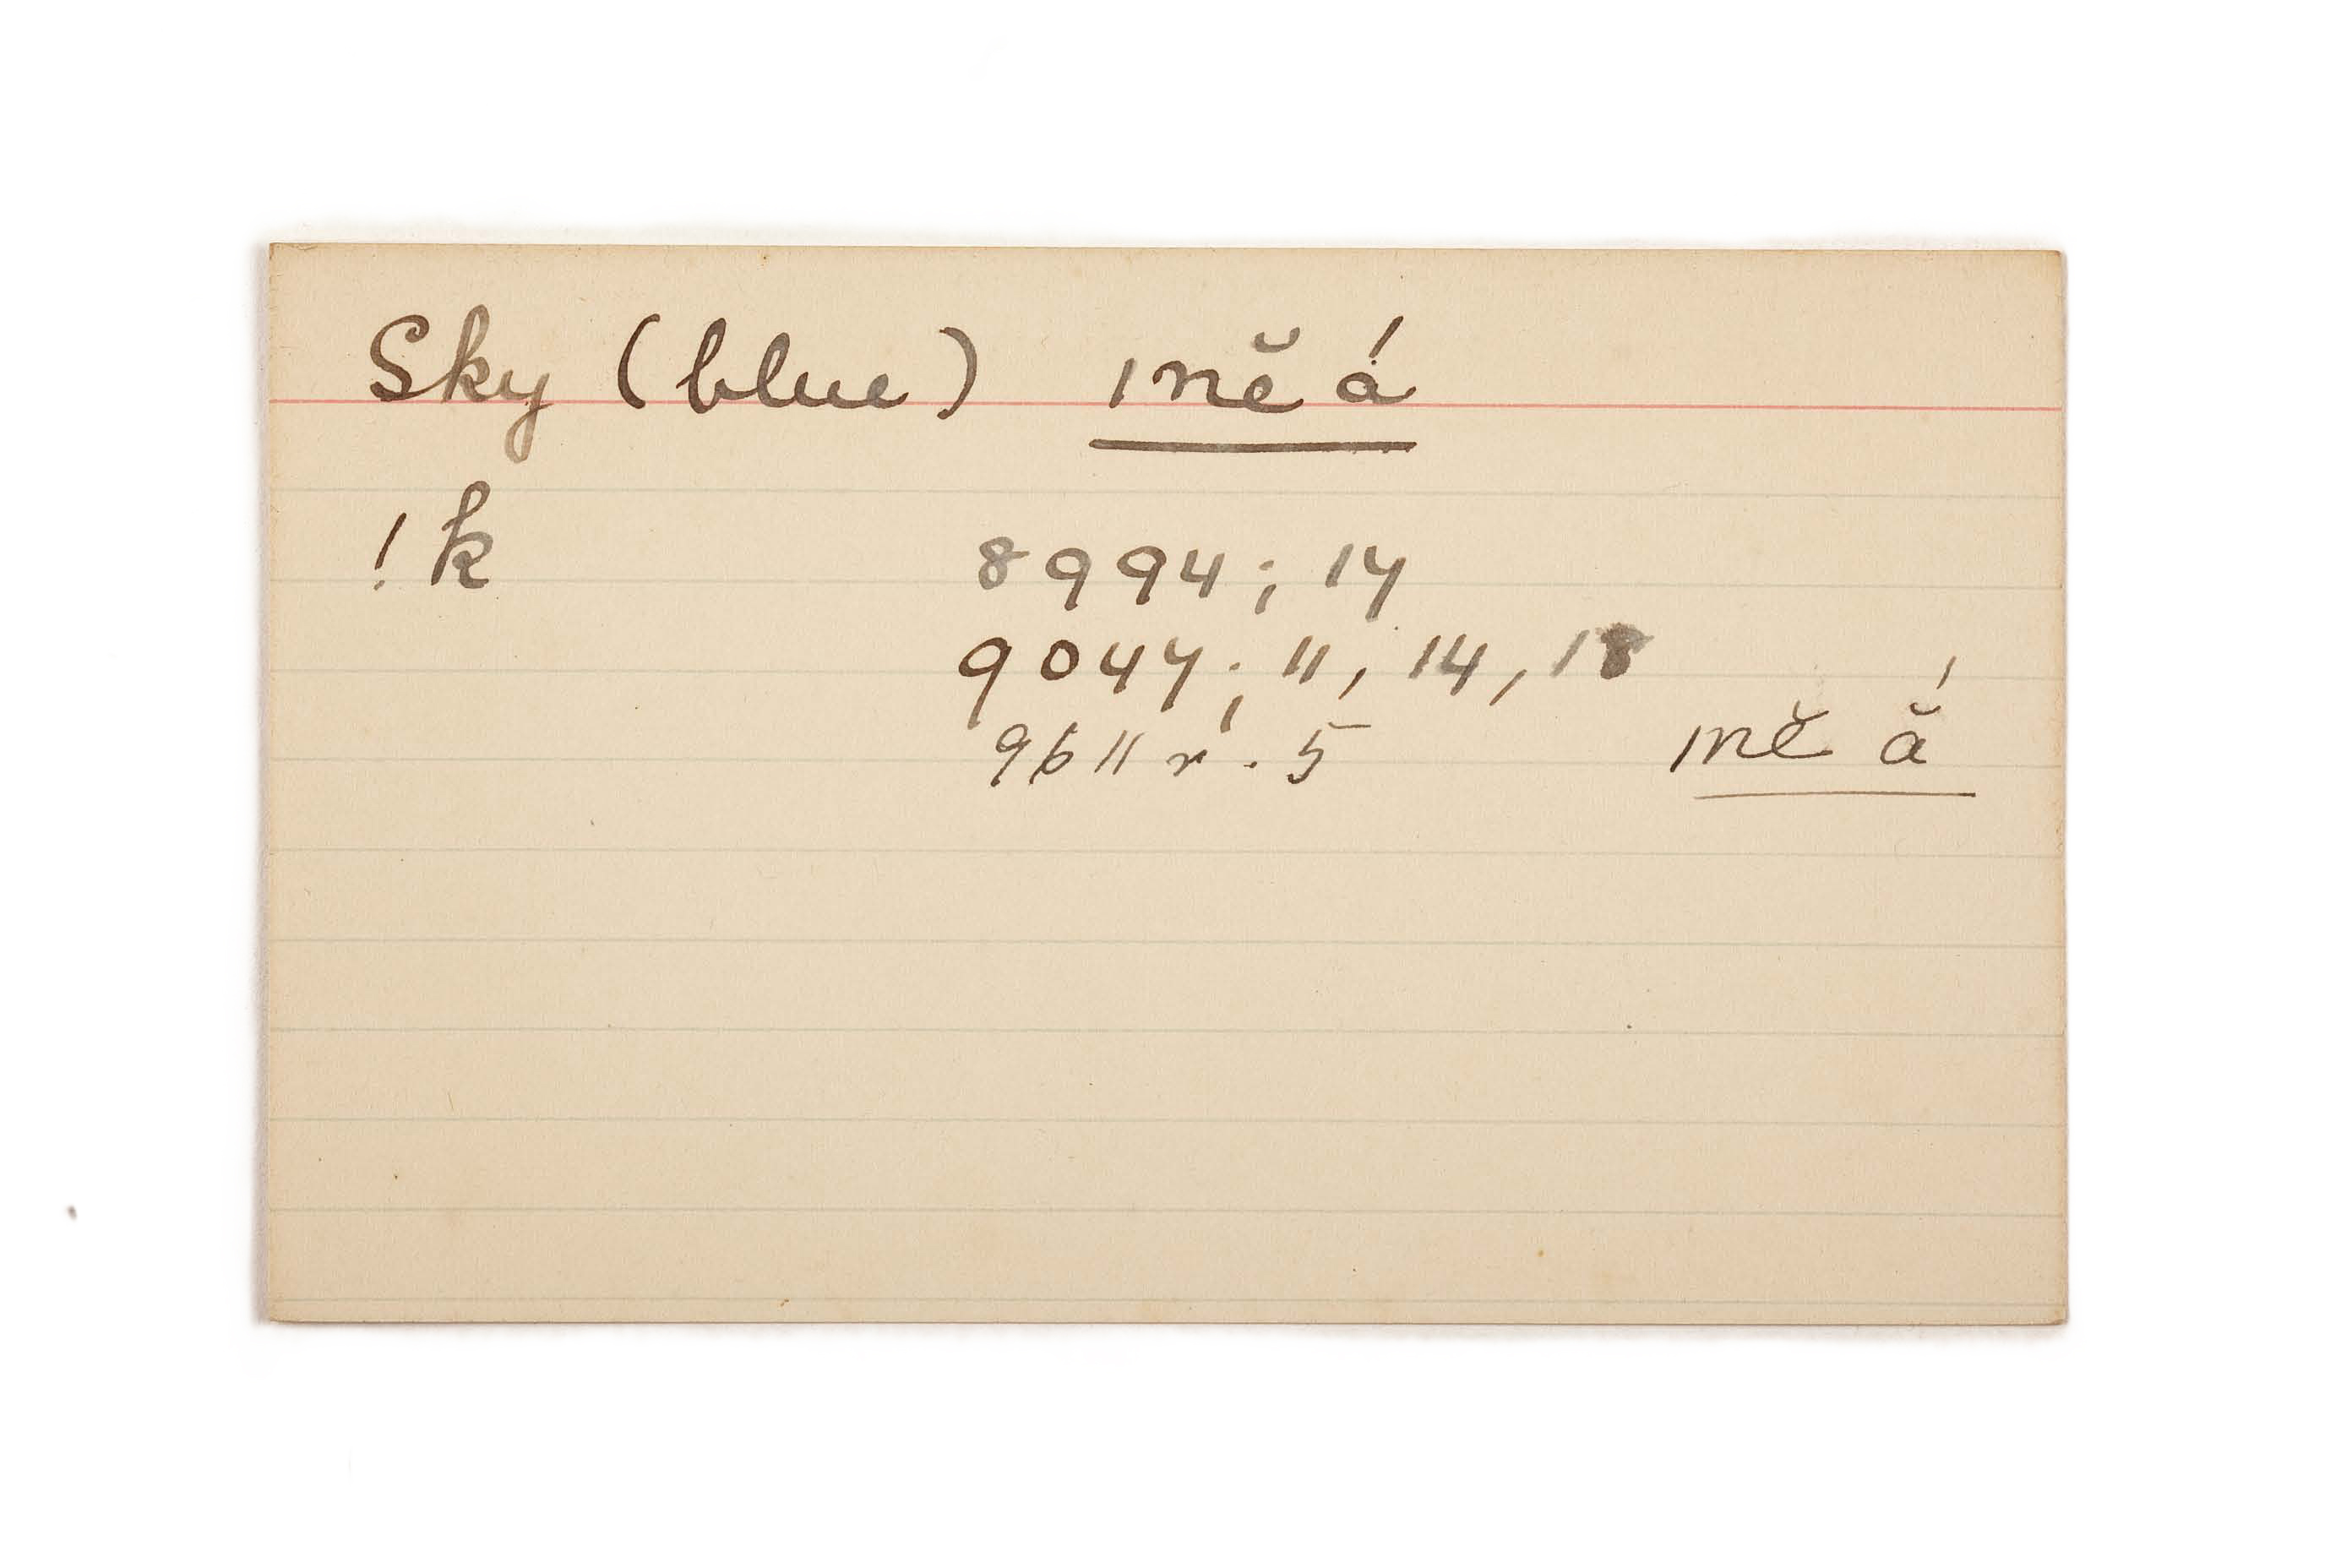 Sky (blue) |nĕ á
!k 8994; 17
9047; 11, 14, 18
9611 r. 5 |nĕ ắ